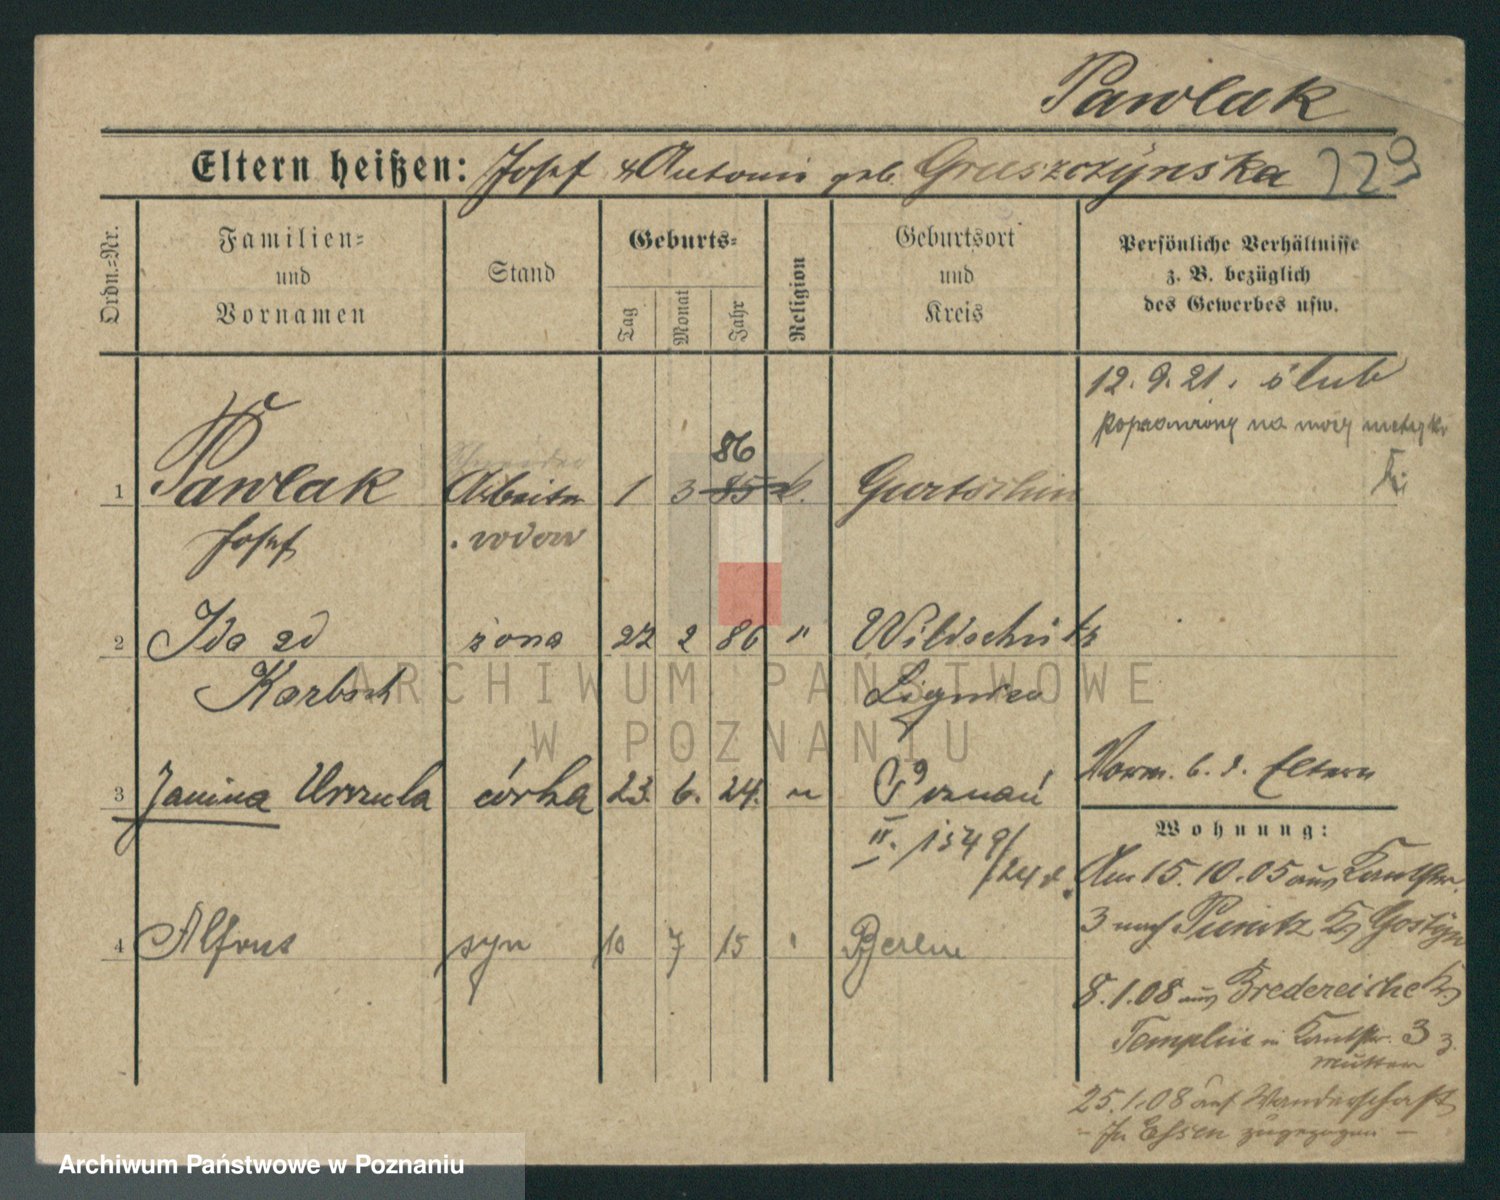 Pawlak
Eltern heißen: Josef & Antonie geb. Gruszczynska 229
Ordn.-Nr.
Familien- und Vornamen
Stand
Geburts-
Tag Monat Jahr
Religion
Geburtsort und Kreis
Persönliche Verhältnisse
z. B. bezüglich
des Gewerbes usw.
12. 9. 21. ślub
poprawiony na mocy metryki
86
1 Pawlak Arbeiter 1 3 85 k. Gurtschin
Josef wdow
2 Ida zd żona 22 2 86 " Wildschütz
Karbsch Lignica
3 Janina Urszula córka 23. 6. 24. " Poznań
II. 1549/24
Vorm. b. d. Eltern
Wohnung:
Am 15.10.05 aus Kantstr.
3 nach Punitz Kr Gostyn
4 Alfons syn 10 7 15 " Berlin
8.1.08 aus Bredereiche Kr
Templin in Kantstr. 3 z.
Mutter
25.1.08 auf Wanderschaft
- In Essen zugezogen -
ARCHIWUM PAŃSTWOWE
W POZNANIU
Archiwum Państwowe w Poznaniu